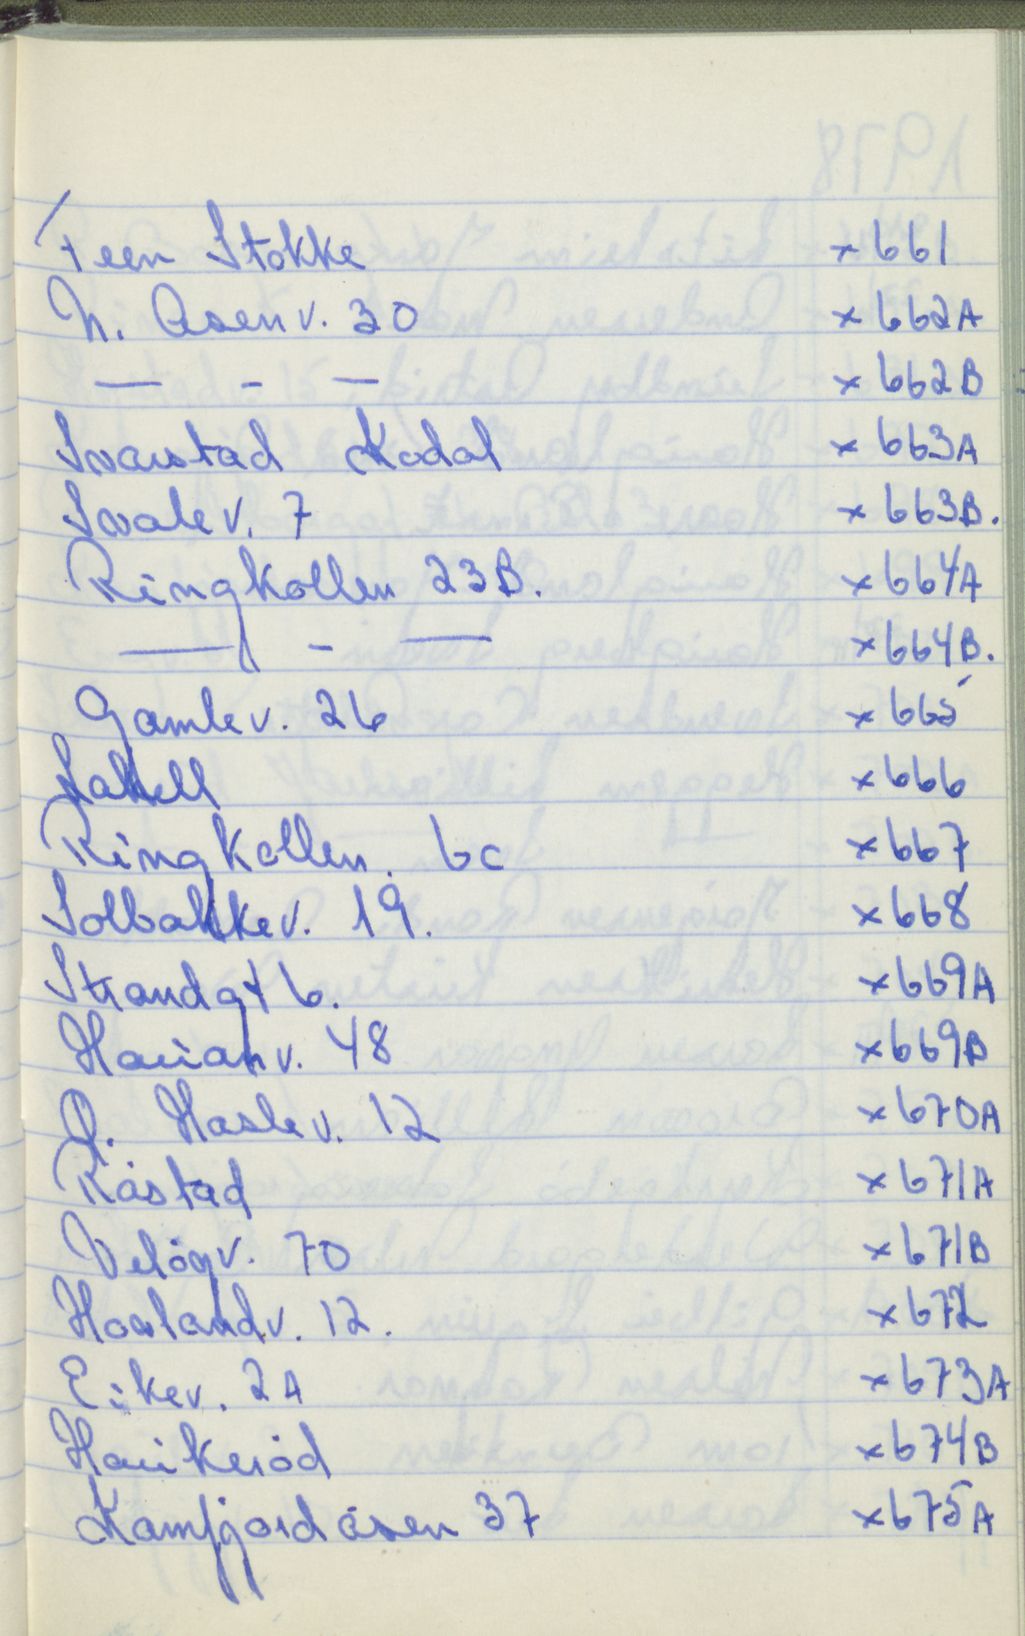 Feen Stokke x 661
N. Åsenv. 30 x 662A
— - — x 662B
Svarstad Kodal x 663A
Svalev. 7 x 663B.
Ringkollen 23B. x 664A
— - — x 664B.
Gamlev. 26 x 665
Labell x 666
Ringkollen. 6c x 667
Solbakkev. 19. x 668
Strandgt 6. x 669A
Hauanv. 48 x 669B
Ø. Haslev. 12 x 670A
Råstad x 671A
Velögv. 70 x 671B
Hovlandv. 12. x 672
Eikev. 2A x 673A
Haukeröd x 674B
Kamfjordåsen 37 x 675A